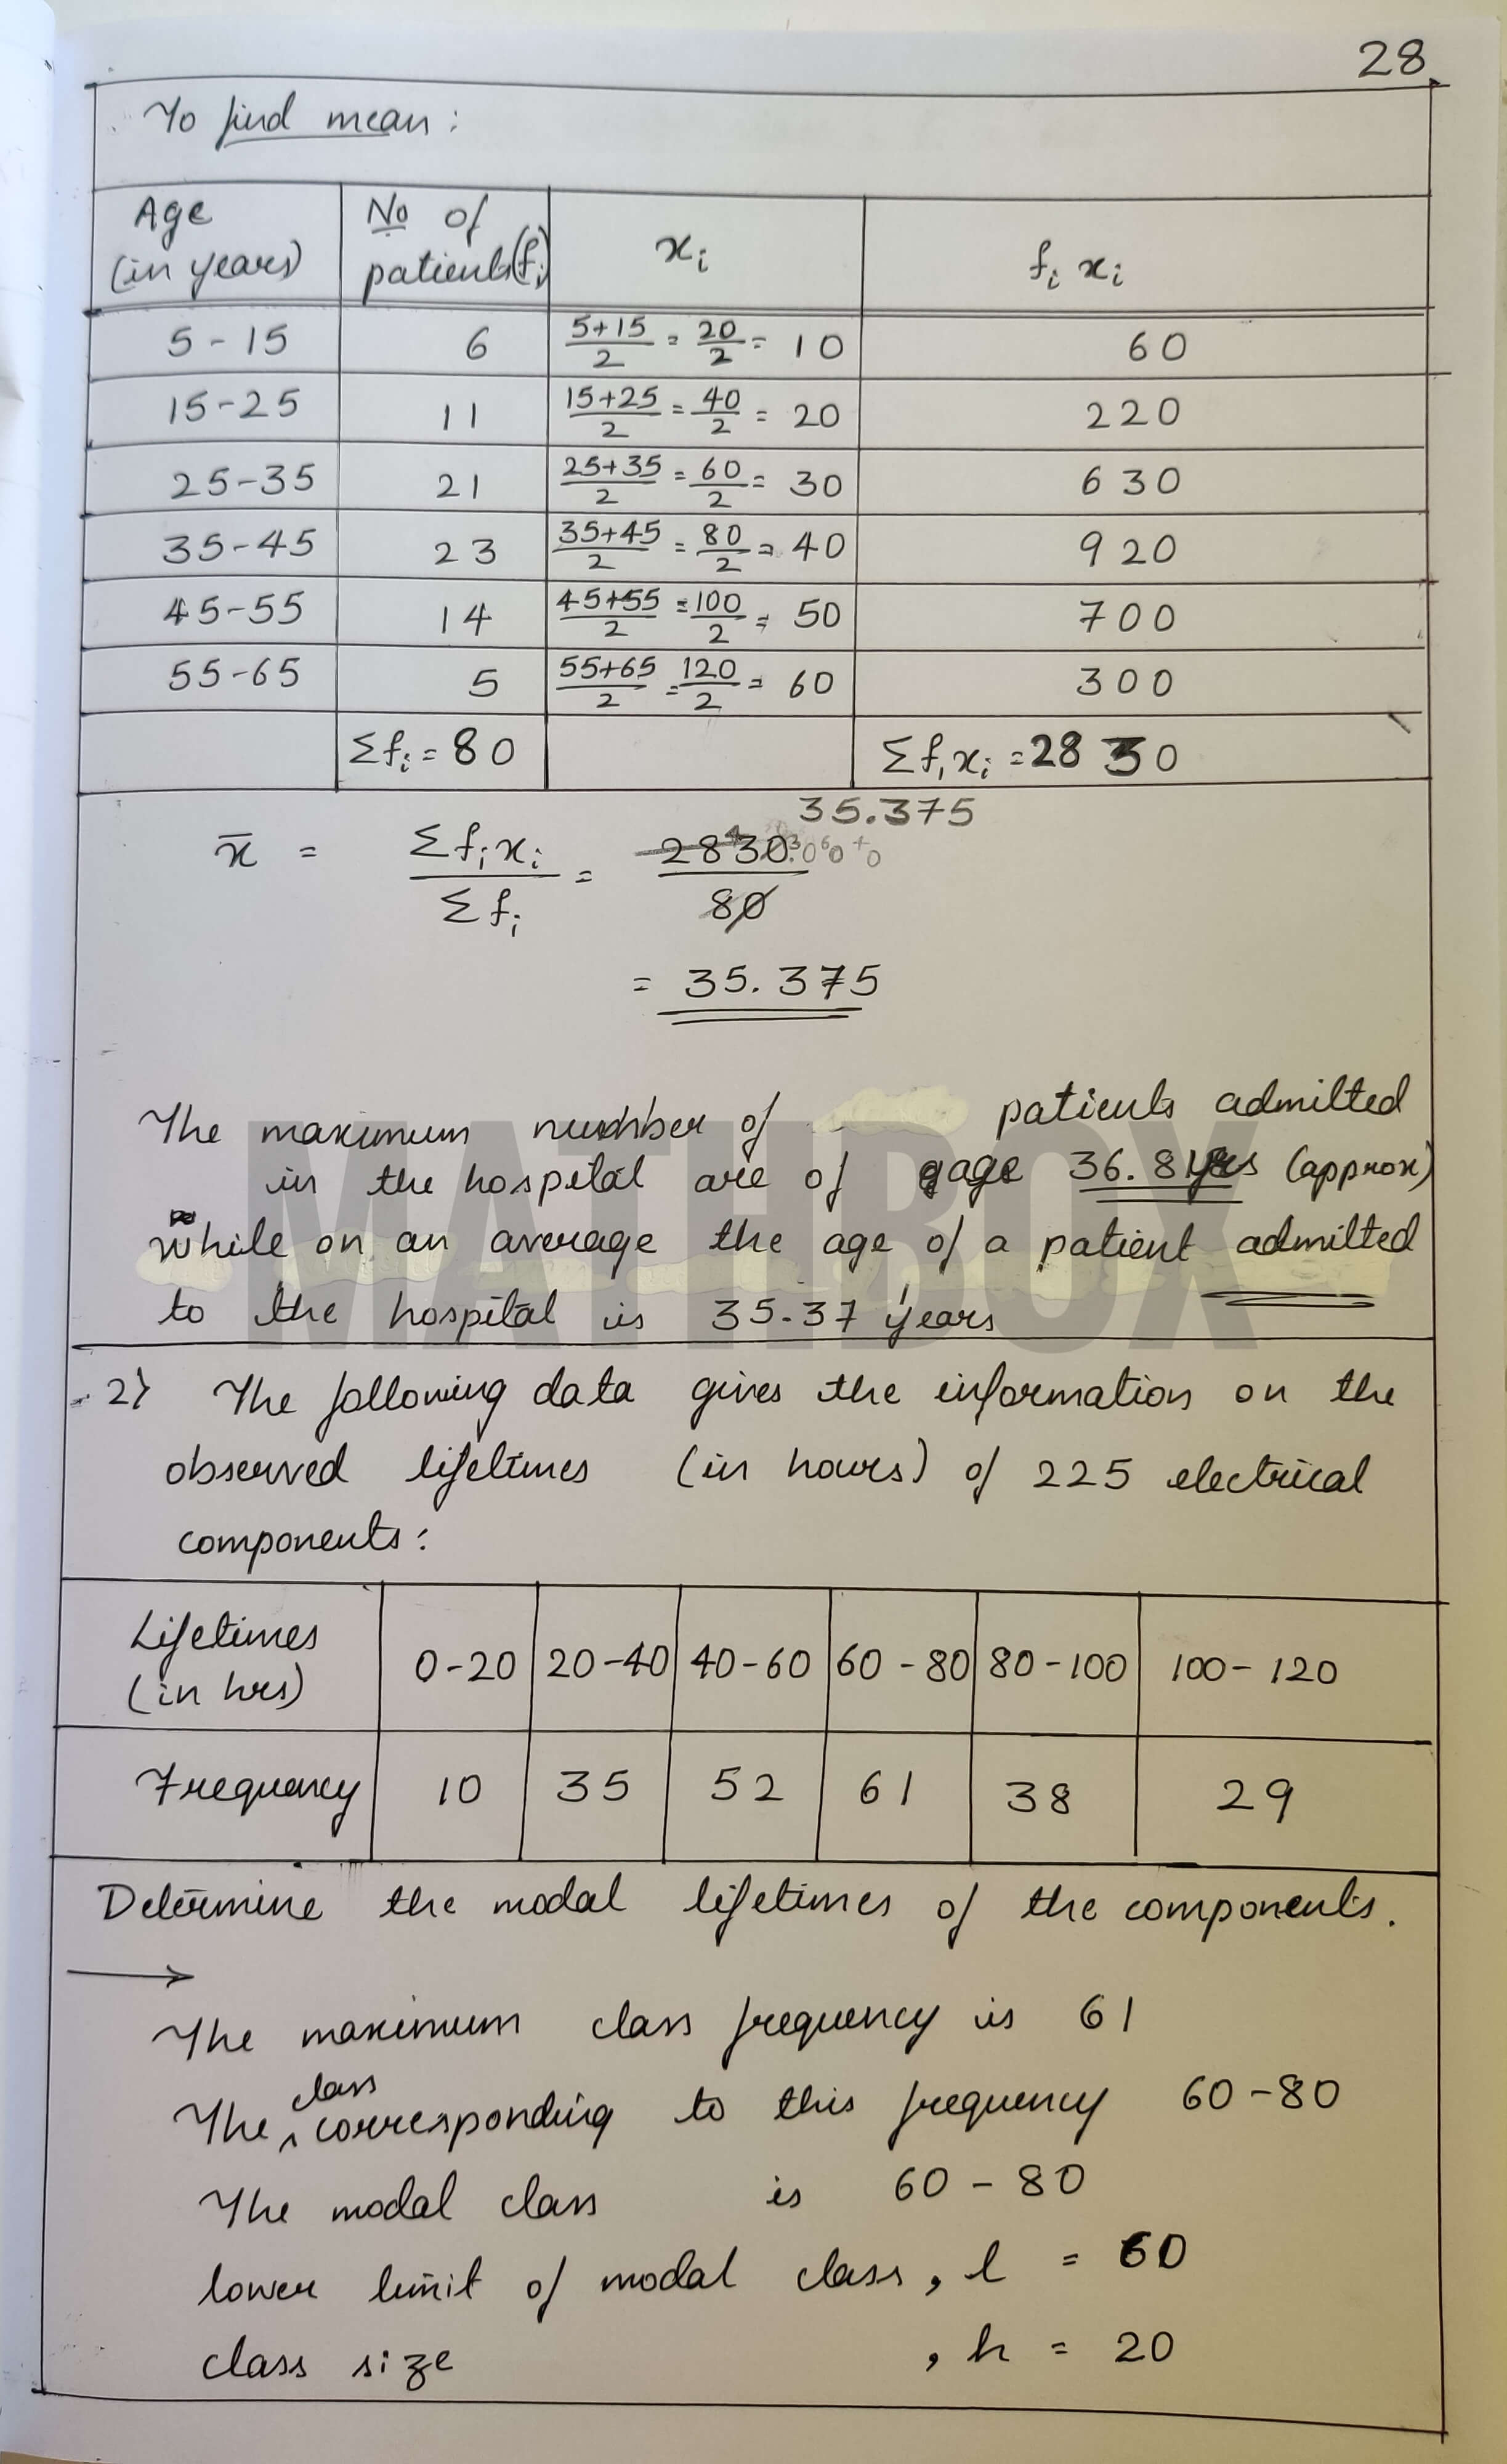 28
To find mean:
Age (in years) | No of patients (fi) | xi | fi xi
5-15 | 6 | 5+15/2 = 20/2 = 10 | 60
15-25 | 11 | 15+25/2 = 40/2 = 20 | 220
25-35 | 21 | 25+35/2 = 60/2 = 30 | 630
35-45 | 23 | 35+45/2 = 80/2 = 40 | 920
45-55 | 14 | 45+55/2 = 100/2 = 50 | 700
55-65 | 5 | 55+65/2 = 120/2 = 60 | 300
Σfi = 80 | Σfixi = 2830
35.375
x̄ = Σfixi/Σfi = 2830/80
= 35.375
The maximum number of patients admitted
in the hospital are of age 36.8 yrs (approx)
while on an average the age of a patient admitted
to the hospital is 35.37 years
MATHBOX
2) The following data gives the information on the
observed lifetimes (in hours) of 225 electrical
components:
Lifetimes (in hrs) | 0-20 | 20-40 | 40-60 | 60-80 | 80-100 | 100-120
Frequency | 10 | 35 | 52 | 61 | 38 | 29
Determine the modal lifetimes of the components.
→
The maximum class frequency is 61
The class corresponding to this frequency 60-80
The modal class is 60-80
lower limit of modal class, l = 60
class size, h = 20